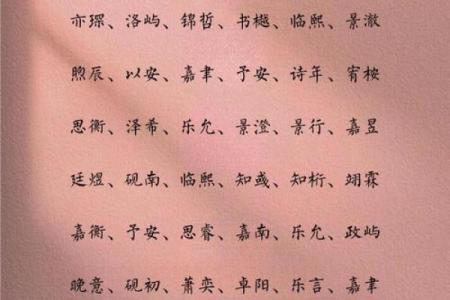 亦琛、洛屿、锦哲、书樾、临熙、景澈
煦辰、以安、嘉聿、予安、诗年、宥桉
思衡、泽希、乐允、景澄、景行、嘉昱
廷煜、砚南、临熙、知彧、知桁、翊霖
嘉衡、予安、思睿、嘉南、乐允、政屿
晚意、砚初、萧奕、卓阳、乐言、嘉聿